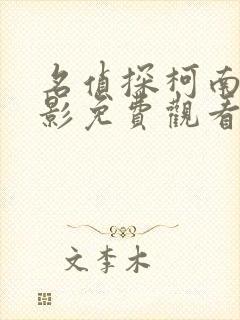 名偵探柯南
影免費觀看
文李木